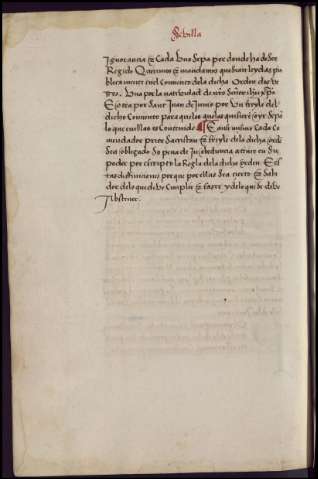 Sevilla
Ignorancia e Cada Uno Sepa por donde ha de Ser
Regido Queremos e mandamos que Sean leydas pu
blicamente en el Convento dela dicha Orden dos ve
zes Una por la natividad de nro Señor ihu xpo
E otra por Sant Juan de Junio por Un freyle del
dicho Convento para que los que las quisieren oyr Sepan
lo que en ellas es Contenido E ansi mismo Cada Co
mendador prior Sacristan e freyle dela dicha orden
Sea obligado So pena de Inobediencia a tener en Su
poder por escripto la Regla dela dicha orden E es
tas difiniciones por que por ellas Sea cierto e Sabi
dor delo que deve Cumplir e fazer y delo que Se deve
Abstener